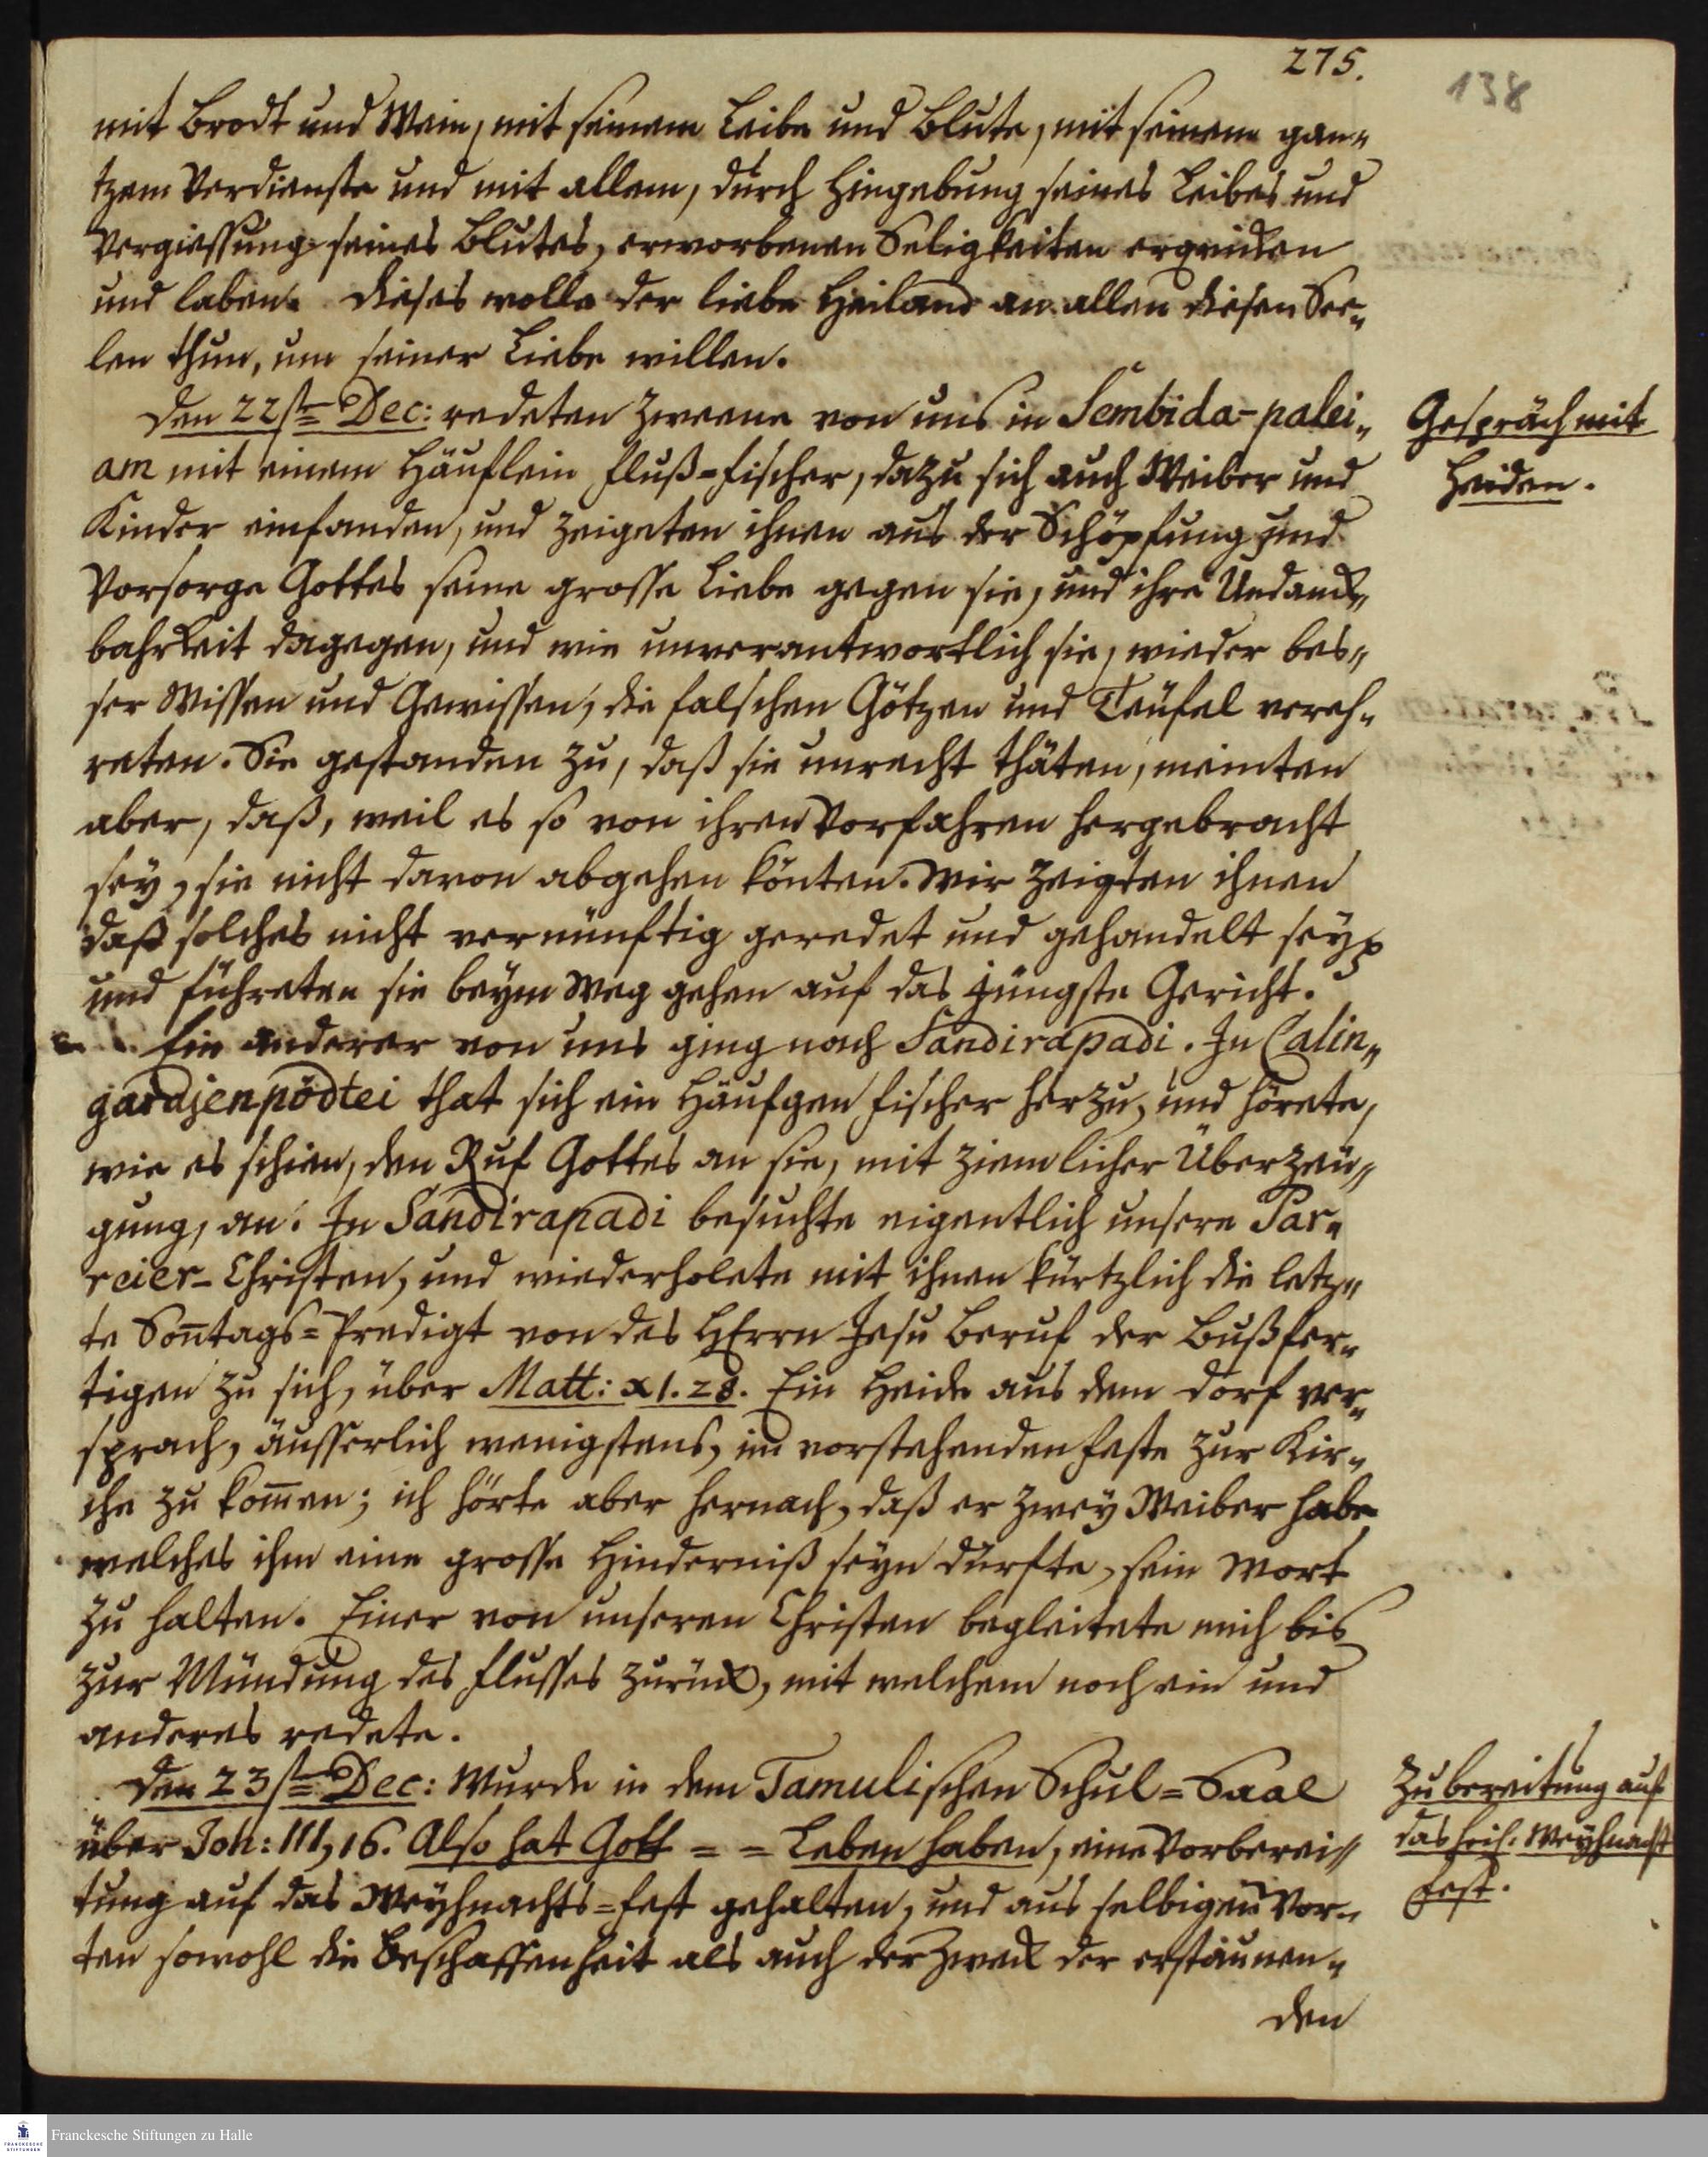 275.
138
mit Brodt und Wein, mit seinem Leibe und Blute, mit seinem gan„
tzem Verdienste und mit allem, durch Hingebung seines Leibes und
Vergiessung seines Blutes, erworbenen Seligkeiten erquicken
und laben. Dieses wolle der liebe Heiland an allen diesen See„
len thun, um seiner Liebe willen.
Den 22st= Dec: redeten zweene von uns in Sembida-palei„
am mit einem Häuflein Fluß=Fischer, dazu sich auch Weiber und
Kinder einfanden, und zeigeten ihnen aus der Schöpfung und
Vorsorge Gottes seine grosse Liebe gegen sie, und ihre Undanck„
bahrkeit dagegen, und wie unverantwortlich sie, wieder bes„
ser Wissen und Gewissen, die falschen Götzen und Teüfel vereh„
reten. Sie gestanden zu, daß sie unrecht thäten, meinten
aber, daß, weil es so von ihren Vorfahren hergebracht
sey, sie nicht davon abgehen könten. Wir zeigten ihnen
daß solches nicht vernünftig geredet und gehandelt sey,
und führeten sie beym Weg gehen auf das jüngste Gericht.
Ein anderer von uns ging nach Sandirapadi. In Calin„
gardjenpödtei that sich ein Häufgen Fischer herzu, und hörete,
wie es schien, den Ruf Gottes an sie, mit ziemlicher Überzeü„
gung, an. In Sandirapadi besuchte eigentlich unsere Par„
reier-Christen, und wiederholete mit ihnen kürtzlich die letz„
te Son̄tags=Predigt von des HErrn Jesu Beruf der Bußfer„
tigen zu sich, über Matt: XI. 28. Ein Heide aus dem Dorf ver„
sprach, äusserlich wenigstens, im vorstehenden Feste zur Kir„
che zu kom̄en; ich hörte aber hernach, daß er zwey Weiber habe
welches ihm eine grosse Hinderniß seyn dürfte, sein Wort
zu halten. Einer von unseren Christen begleitete mich bis
zur Mündung des Flusses zurück, mit welchem noch ein und
anderes redete.
Den 23st= Dec: Wurde in dem Tamulischen Schul=Saal
über Joh: III, 16. Also hat Gott = = Leben haben, eine Vorberei„
tung auf das Weyhnachts=Fest gehalten, und aus selbigen Wor„
ten sowohl die Beschaffenheit als auch der Zweck der erstaunen„
den
Gespräch mit
Heiden.
Zubereitung auf
das heil. Weyhnacht
Fest.
Franckesche Stiftungen zu Halle